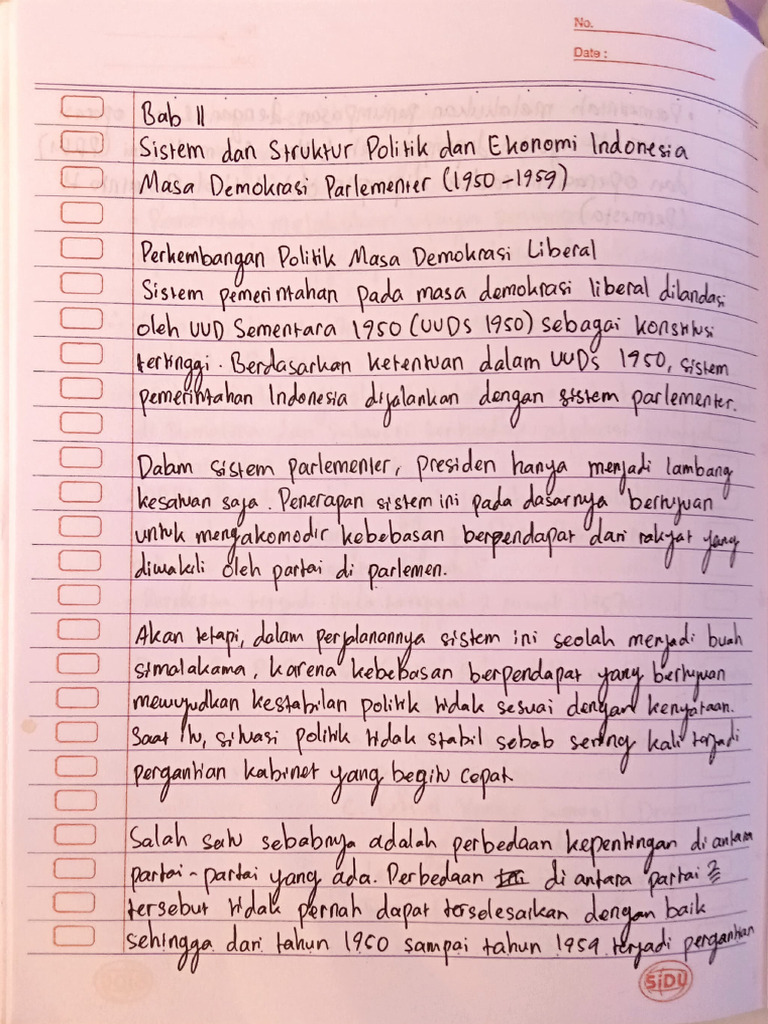 No.
Date :
Bab II
Sistem dan Struktur Politik dan Ekonomi Indonesia
Masa Demokrasi Parlementer (1950-1959)
Perkembangan Politik Masa Demokrasi Liberal
Sistem pemerintahan pada masa demokrasi liberal dilandasi
oleh UUD Sementara 1950 (UUDs 1950) sebagai konstitusi
tertinggi. Berdasarkan ketentuan dalam UUDs 1950, sistem
pemerintahan Indonesia dijalankan dengan sistem parlementer.
Dalam sistem parlementer, presiden hanya menjadi lambang
kesatuan saja. Penerapan sistem ini pada dasarnya bertujuan
untuk mengakomodir kebebasan berpendapat dari rakyat yang
diwakili oleh partai di parlemen.
Akan tetapi, dalam perjalanannya sistem ini seolah menjadi buah
simalakama, karena kebebasan berpendapat yang bertujuan
mewujudkan kestabilan politik tidak sesuai dengan kenyataan.
Saat itu, situasi politik tidak stabil sebab sering kali terjadi
pergantian kabinet yang begitu cepat.
Salah satu sebabnya adalah perbedaan kepentingan di antara
partai-partai yang ada. Perbedaan di antara partai2
tersebut tidak pernah dapat terselesaikan dengan baik
sehingga dari tahun 1950 sampai tahun 1959 terjadi pergantian
SiDU